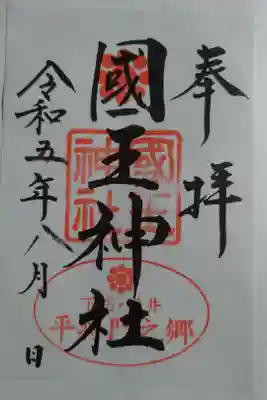 奉拝
國王神社
國王神社
平将門之郷
令和五年八月 日